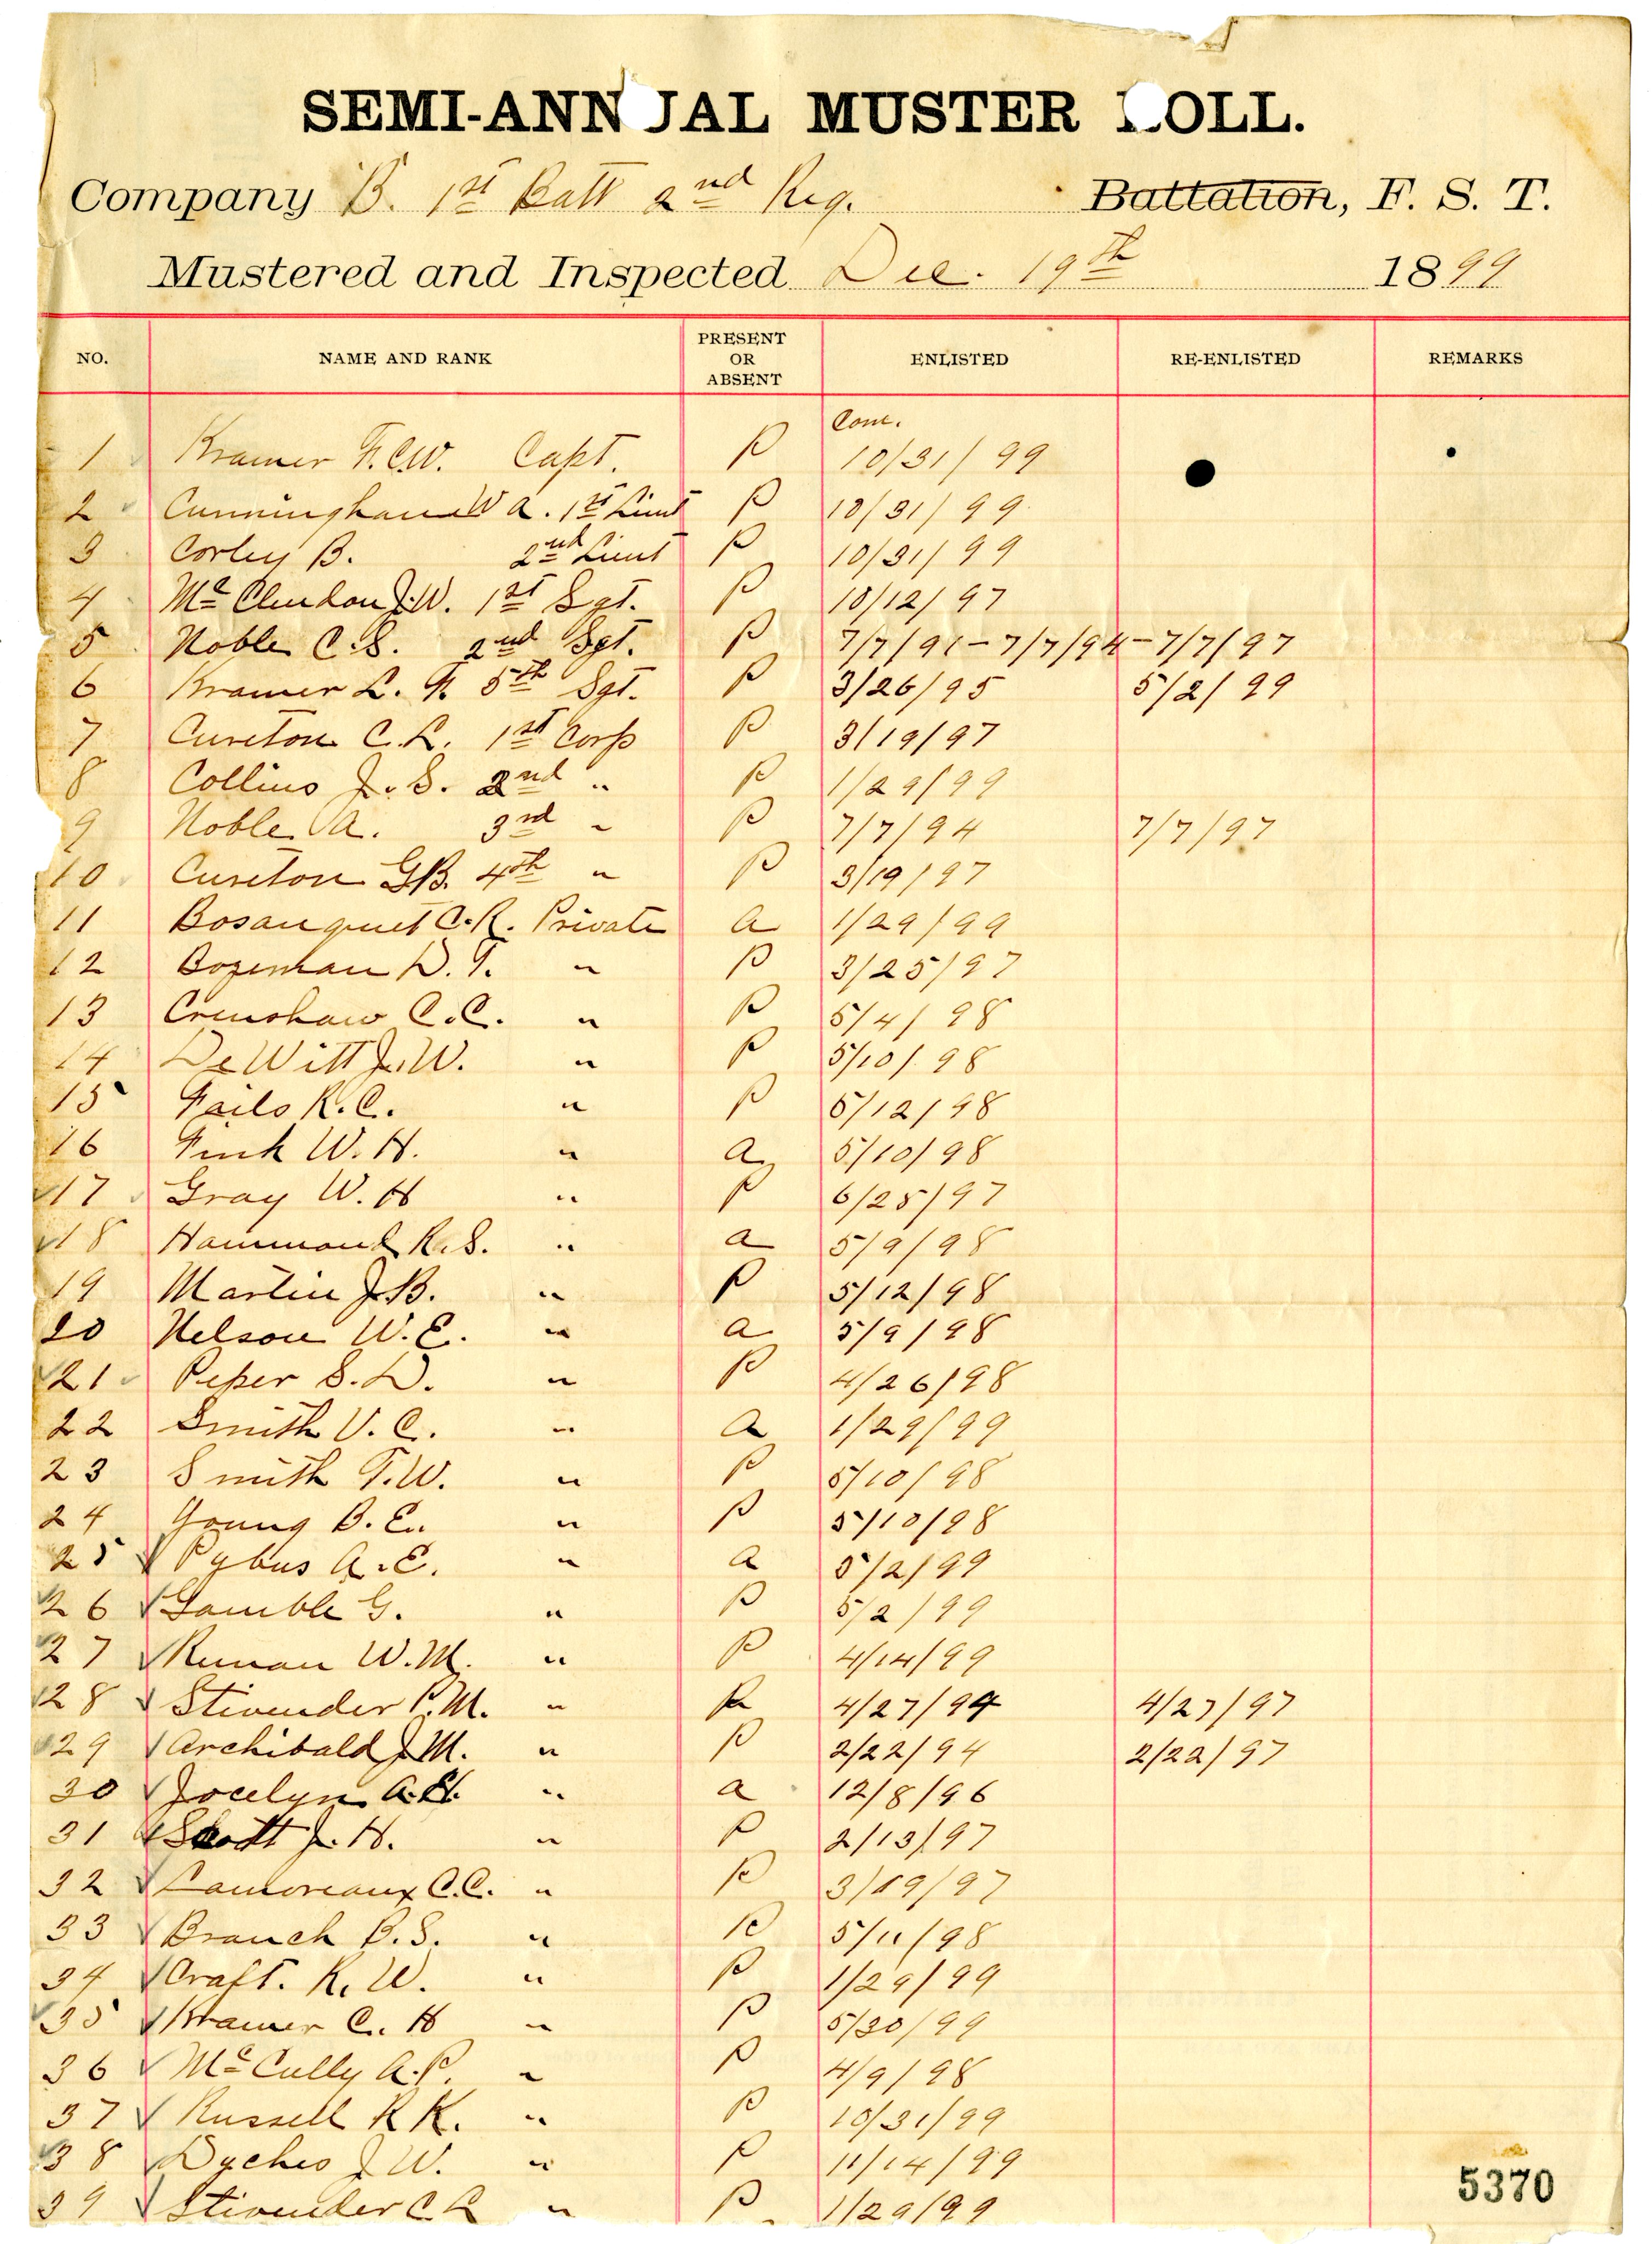 SEMI-ANNUAL MUSTER ROLL.
Company B. 1st Batt 2nd Reg. Battalion, F. S. T.
Mustered and Inspected Dec. 19th 1899
NO. NAME AND RANK PRESENT OR ABSENT ENLISTED RE-ENLISTED REMARKS
Com.
1 Kramer F.C.W. Capt. P 10/31/99
2 Cunningham W A. 1st Lieut P 10/31/99
3 Corley B. 2nd Lieut P 10/31/99
4 Mc Clendon J.W. 1st Sgt. P 10/12/97
5 Noble C.S. 2nd Sgt. P 7/7/91-7/7/94-7/7/97
6 Kramer L. F. 5th Sgt. P 3/26/95 5/2/99
7 Cureton C.L. 1st Corp P 3/19/97
8 Collins J.S. 2nd " P 1/29/99
9 Noble A. 3rd " P 7/7/94 7/7/97
10 Cureton G.B. 4th " P 3/19/97
11 Bosanquet C.R. Private a 1/29/99
12 Bozeman D.T. " P 3/25/97
13 Crenshaw C.C. " P 5/4/98
14 DeWitt J.W. " P 5/10/98
15 Fails R.C. " P 5/12/98
16 Fink W.H. " a 5/10/98
17 Gray W.H " P 6/25/97
18 Hammond R.S. " a 5/9/98
19 Martin J.B. " P 5/12/98
20 Nelson W.E. " a 5/9/98
21 Peper S.D. " P 4/26/98
22 Smith V.C. " a 1/29/99
23 Smith T.W. " P 5/10/98
24 Young B.E. " P 5/10/98
25 Pybus A.E. " a 5/2/99
26 Gamble G. " P 5/2/99
27 W.M. " P 4/14/99
28 Stivender P.M. " P 4/27/94 4/27/97
29 Archibald J.M. " P 2/22/94 2/22/97
30 Jocelyn A.H. " a 12/8/96
31 Scott J.H. " P 2/13/97
32 Lamoreaux C.C. " P 3/19/97
33 Branch B.S. " P 5/11/98
34 Craft. R.W. " P 1/29/99
35 Kramer C.H " P 5/30/99
36 McCully A.P. " P 4/9/98
37 Russell R K. " P 10/31/99
38 Dyches J W. " P 11/14/99
39 Stivender C L " P 1/29/99
5370